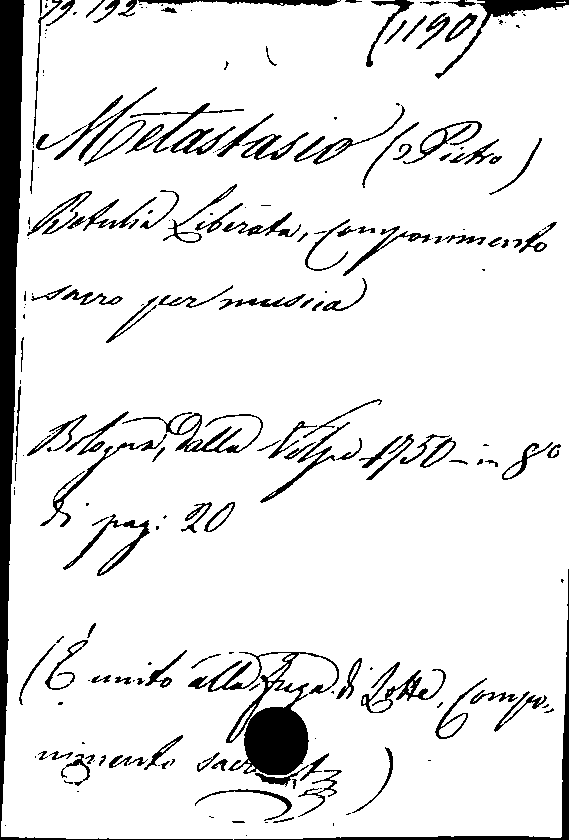 79. 192
(1190)
Metastasio (Pietro)
Betulia Liberata, componimento
sacro per musica
Bologna, dalla Volpe 1750 - in 8º
di pag: 20
(È unito alla fuga di Lotte, compo-
nimento sacro)